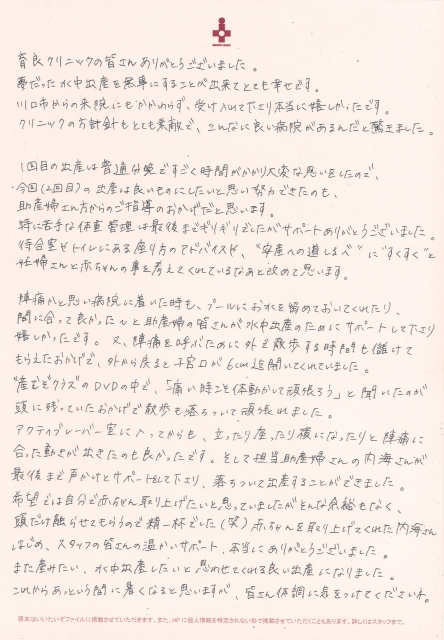 育良クリニックの皆さんありがとうございました。
夢だった水中出産を無事にすることが出来てとても幸せです。
川口市からの来院にもかかわらず、受け入れて下さり本当に嬉しかったです。
クリニックの方針もとても素敵で、こんなに良い病院があるんだと驚きました。
1回目の出産は普通分娩ですごく時間がかかり大変な思いをしたので、
今回(2回目)の出産は良いものにしたいと思い努力できたのも、
助産婦さん方からのご指導のおかげだと思います。
特に苦手な体重管理は最後までギリギリでしたがサポートありがとうございました。
待合室やトイレにある座り方のアドバイスや、"安産への道しるべ"に"すくすく"と
妊婦さんと赤ちゃんの事を考えてくれているなあと改めて思います。
陣痛かと思い病院に着いた時も、プールにお水を溜めておいてくれたり、
間に合って良かった〜と助産婦の皆さんが水中出産のためにサポートして下さり
嬉しかったです。又、陣痛を呼ぶために外で散歩する時間も儲けて
もらえたおかげで、外から戻ると子宮口が6cm迄開いてくれていました。
"産むぞクラス"のDVDの中で、「痛い時こそ体動かして頑張ろう」と聞いたのが
頭に残っていたおかげで散歩も落ちついて頑張れました。
アクティブレーバー室に入ってからも、立ったり座ったり横になったりと陣痛に
合った動きが出きたのも良かったです。そして担当助産婦さんの内海さんが
最後まで声かけとサポートをして下さり、落ちついて出産することができました。
希望では自分で赤ちゃん取り上げたいと思っていましたがそんな余裕もなく、
頭だけ触らせてもらうので精一杯でした(笑)赤ちゃんを取り上げてくれた内海さん
はじめ、スタッフの皆さんの温かいサポート、本当にありがとうございました。
また産みたい、水中出産したいと思わせてくれる良い出産になりました。
これからあっという間に暑くなると思いますが、皆さん体調に気をつけてくださいね。
原本はいいたいぞファイルに掲載させていただきます。また、HPに個人情報を特定されない形で掲載させていただくこともあります。詳しくはスタッフまで。